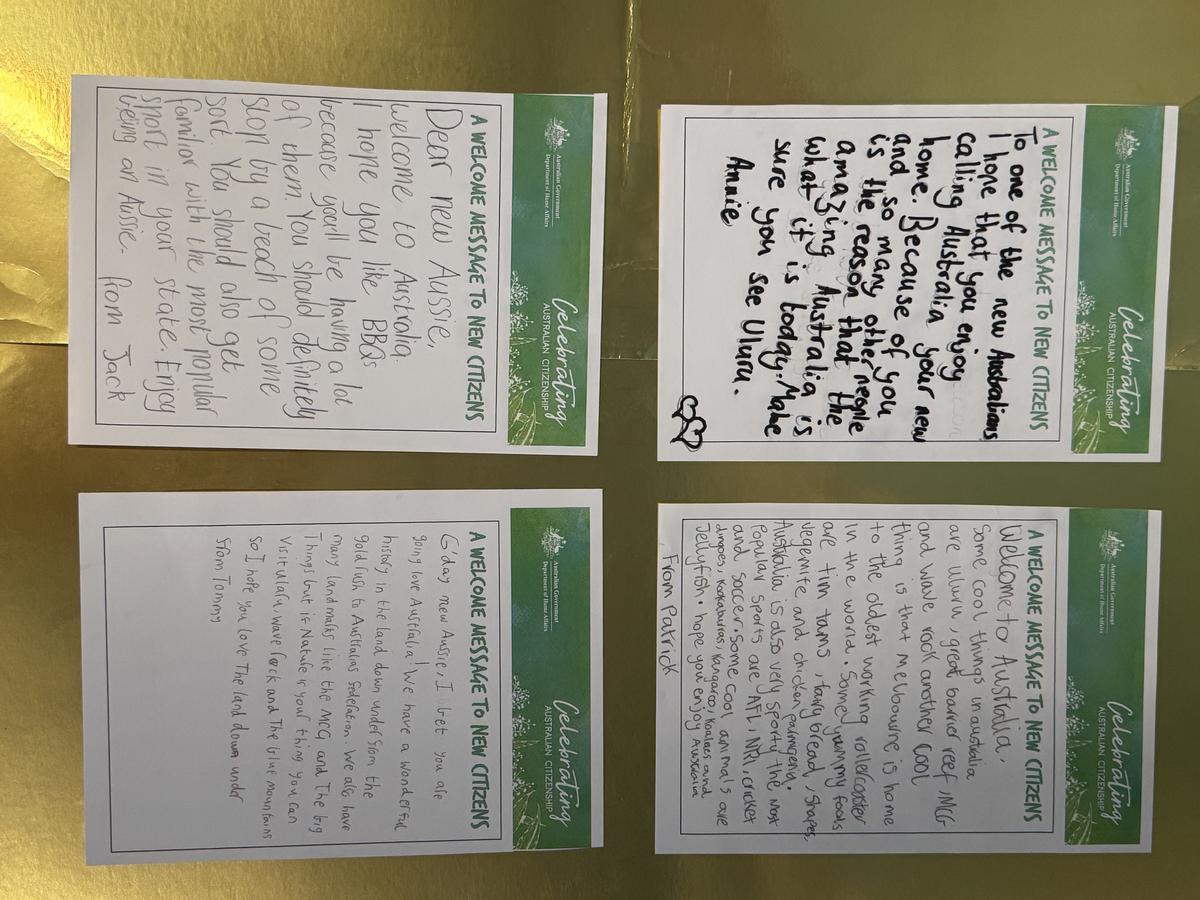 Australian Government
Department of Home Affairs
Celebrating
AUSTRALIAN CITIZENSHIP
A WELCOME MESSAGE TO NEW CITIZENS
To one of the new Australians
I hope that you enjoy
calling Australia your new
home. Because of you
and so many other people
is the reason that the
amazing Australia is
what it is today. Make
sure you see Uluru.
Annie
Australian Government
Department of Home Affairs
Celebrating
AUSTRALIAN CITIZENSHIP
A WELCOME MESSAGE TO NEW CITIZENS
Welcome to Australia.
Some cool things in australia
are uluru, great barrier reef, MCG
and wave rock another cool
thing is that melbourne is home
to the oldest working rollercoaster
in the world. Some yummy foods
are tim tams, fairy bread, shapes,
vegemite and chicken parmigena.
Australia is also very sporty the most
Popular sports are AFL, NRL, cricket
and soccer. Some cool animals are
dingoes, kookaburras, kangaroo, koalaes and
Jellyfish. hope you enjoy Australia
From Patrick
Australian Government
Department of Home Affairs
Celebrating
AUSTRALIAN CITIZENSHIP
A WELCOME MESSAGE TO NEW CITIZENS
Dear new Aussie,
welcome to Australia.
I hope you like BBQs
because you'll be having a lot
of them. You should definitely
stop by a beach of some
sort. You should also get
familiar with the most popular
sport in your state. Enjoy
being an Aussie. from Jack
Australian Government
Department of Home Affairs
Celebrating
AUSTRALIAN CITIZENSHIP
A WELCOME MESSAGE TO NEW CITIZENS
G'day new Aussie, I bet you are
going love Australia! We have a wonderful
history in the land down under from the
gold rush to Australias federation. We also have
many landmarks like the MCG and The big
Things but if Nature is your thing you can
visit uluru, wave rock and The blue mountains
so I hope you love The land down under
from Tommy